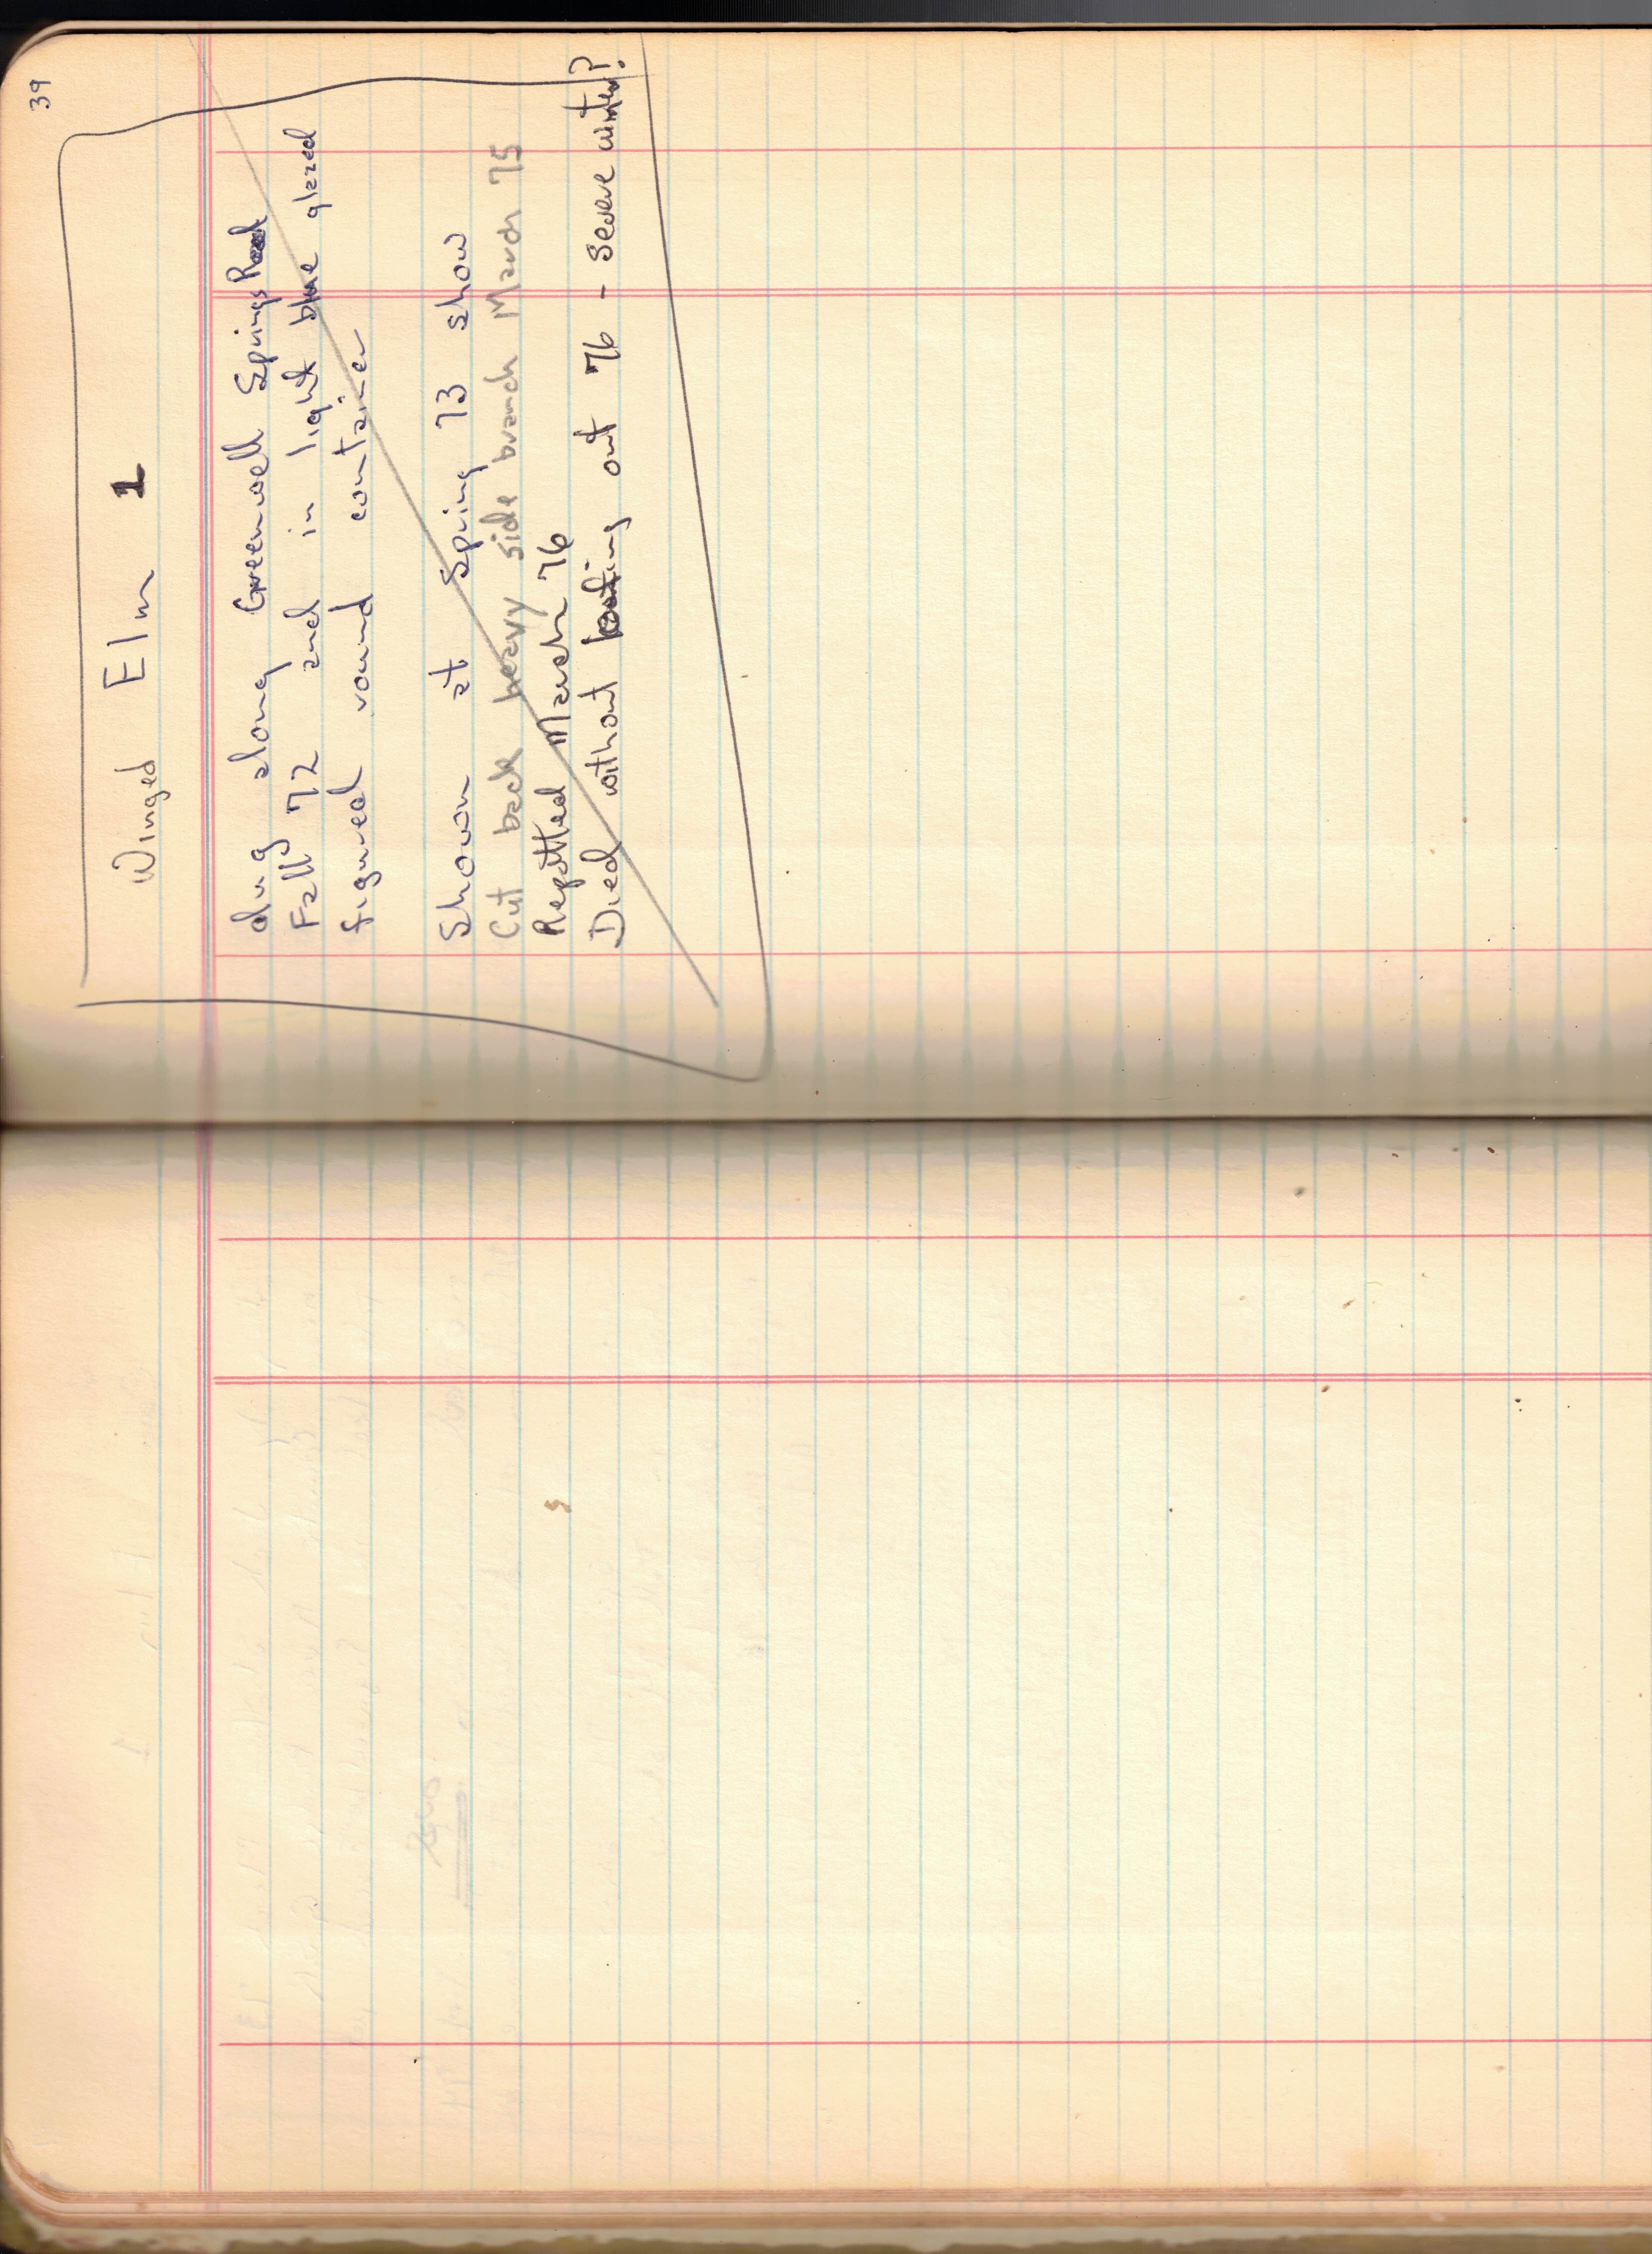 39
Winged Elm 1
dug along Greenwell Springs Road
Fall 72 and in light blue glazed
figured round container
Shown at Spring 73 show
Cut back heavy side branch March 75
Repotted March 76
Died without leafing out 76 - severe winter?